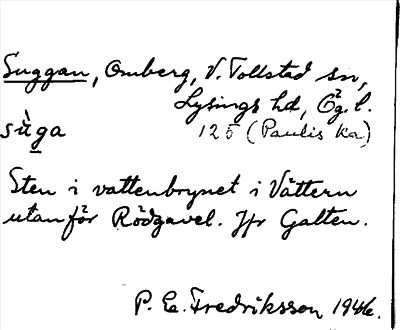 Suggan, Omberg, V. Tollstad sn,
Lysings hd, Ög. l.
sùga 125 (Paulis ka)
Sten i vattenbrynet i Vättern
utanför Rödgavel. Jfr Galten.
P. E. Fredriksson 1946.